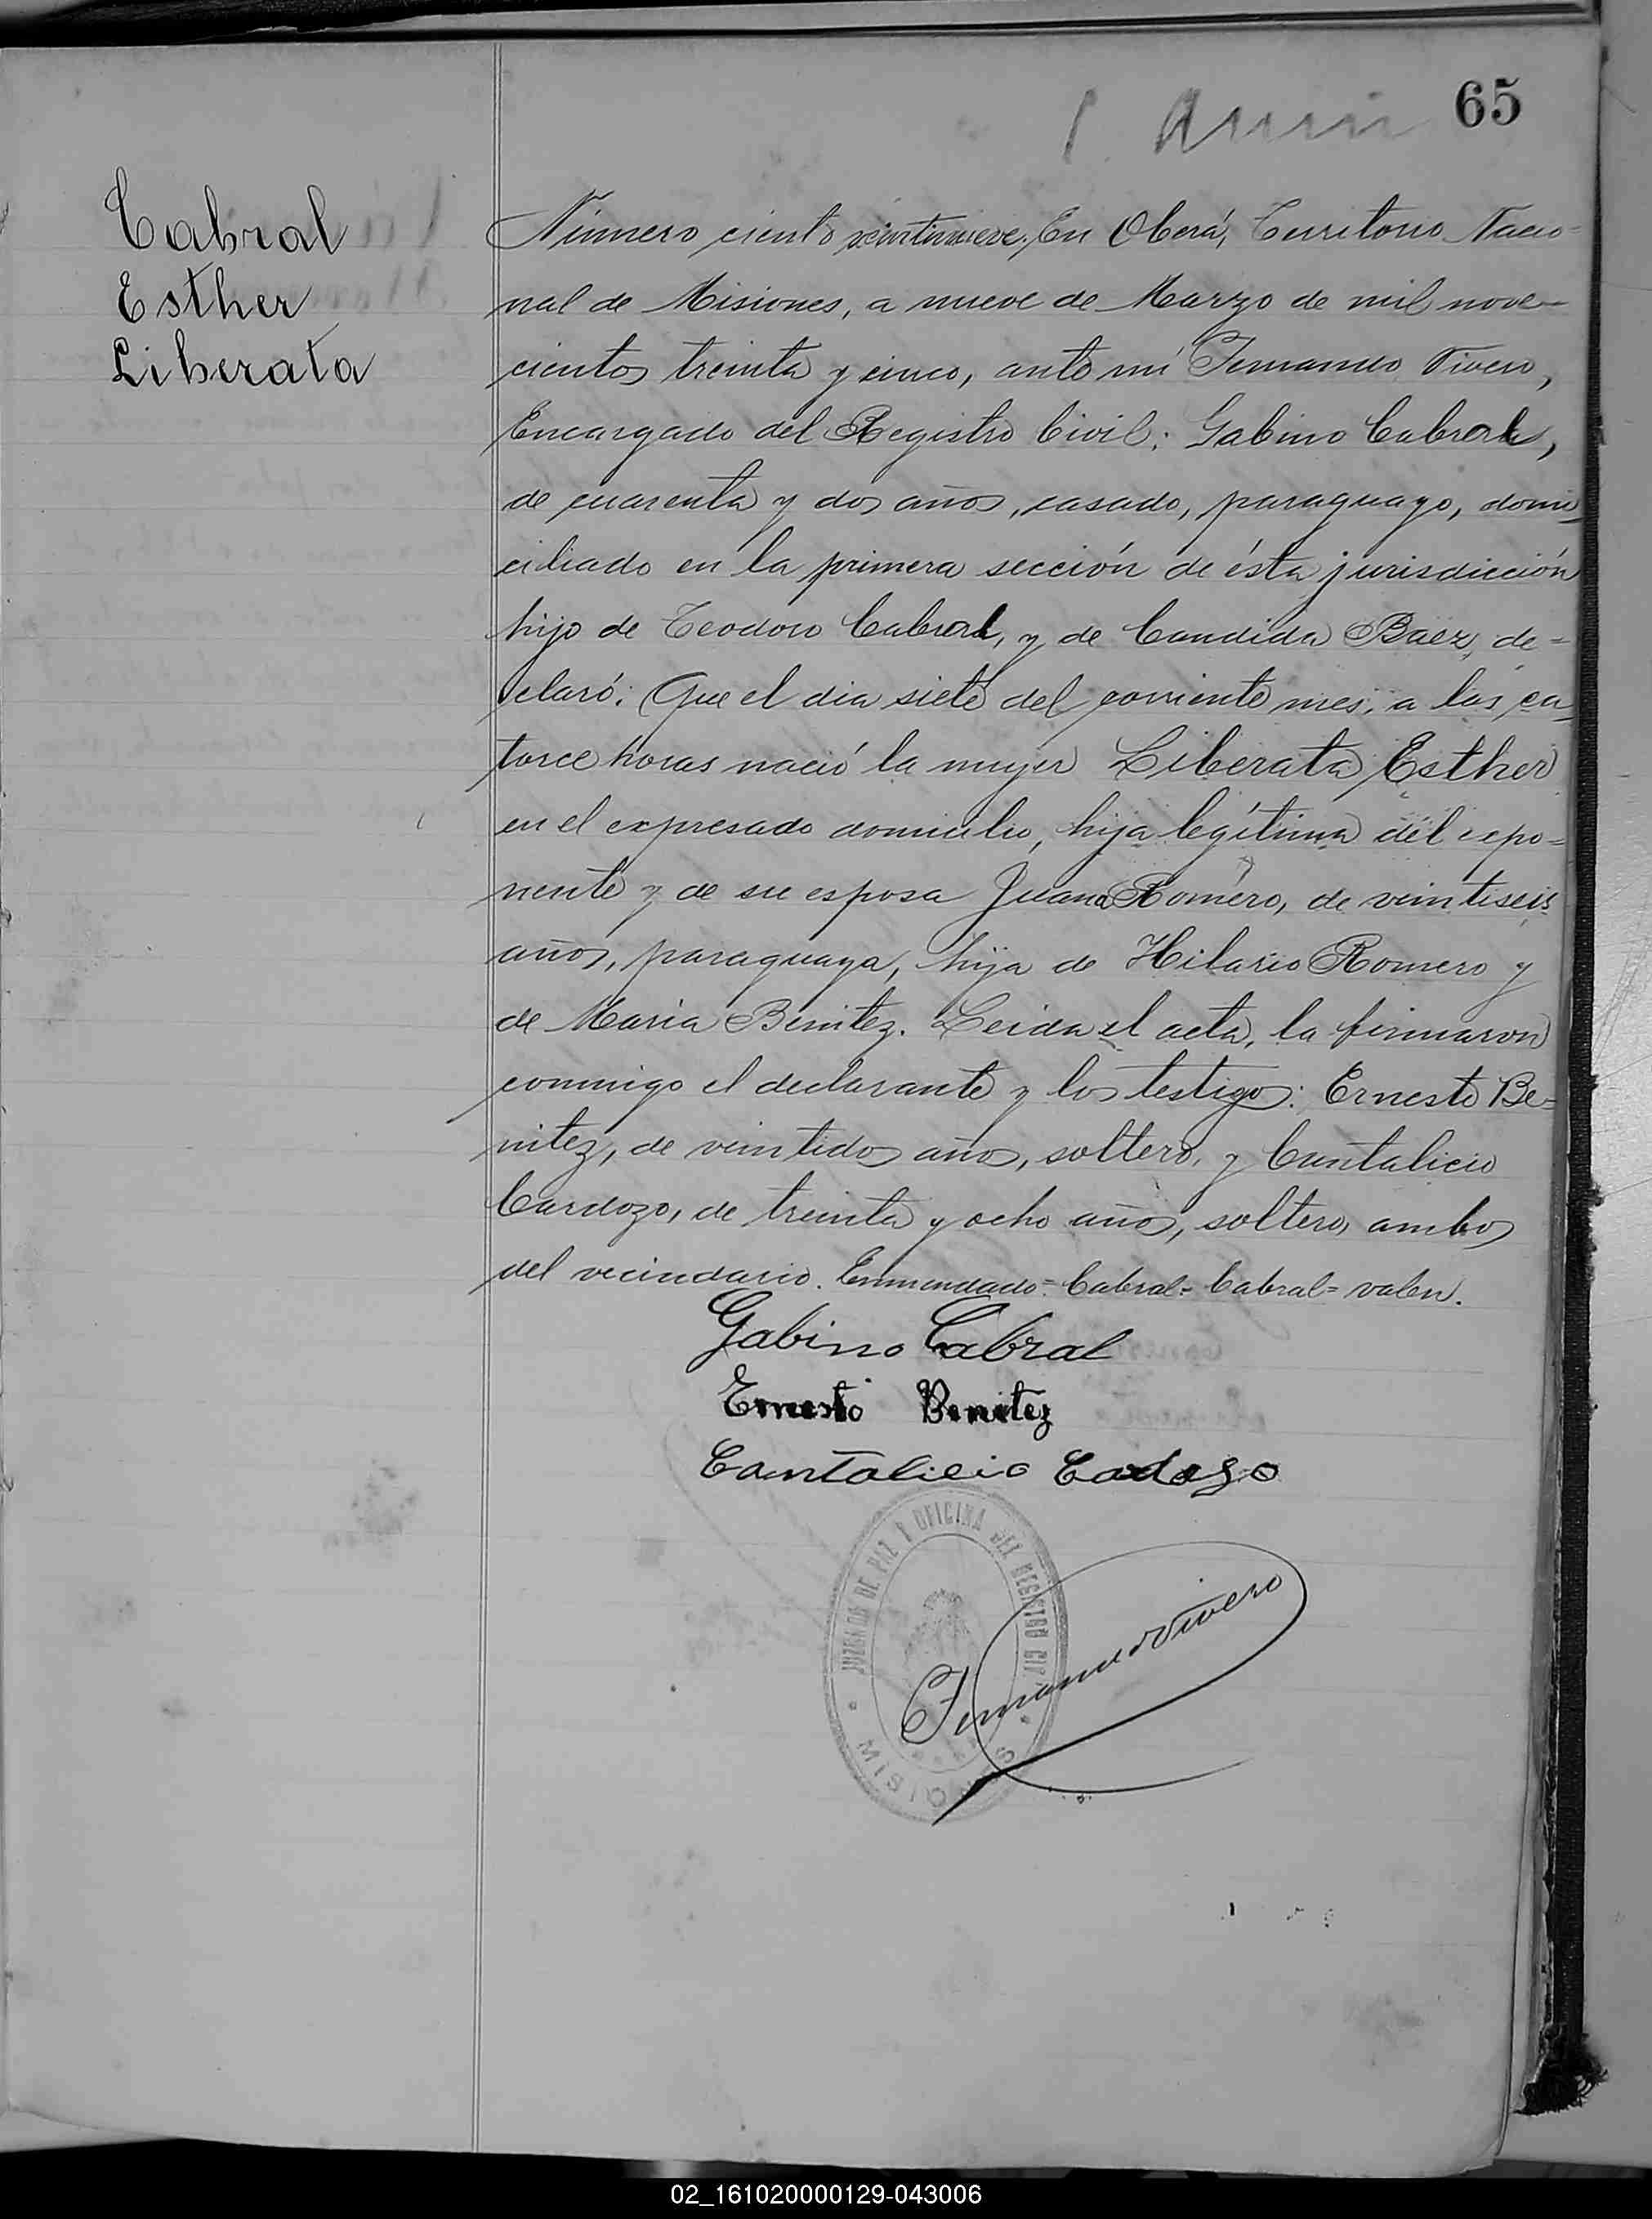 65
Cabral
Esther
Liberata
Número ciento veintinueve. En Oberá, Territorio Nacio=
nal de Misiones, a nueve de Marzo de mil nove-
cientos treinta y cinco, ante mí Fernando Vivero,
Encargado del Registro Civil: Gabino Cabral,
de cuarenta y dos años, casado, paraguayo, domi-
ciliado en la primera sección de ésta jurisdicción
hijo de Teodoro Cabral, y de Candida Baez, de=
claró: Que el dia siete del corriente mes, a las ca-
torce horas nació la mujer Liberata Esther
en el expresado domicilio, hija legítima del expo=
nente y de su esposa Juana Romero, de veintiseis
años, paraguaya, hija de Hilario Romero y
de Maria Benitez. Leida el acta, la firmaron
conmigo el declarante y los testigos: Ernesto Be=
nitez, de veintidos años, soltero, y Cantalicio
Cardozo, de treinta y ocho años, soltero, ambos
del vecindario. Enmendado=Cabral=Cabral=valen.
Gabino Cabral
Ernesto Benitez
Cantalicio Cadozo
JUZGADO DE PAZ Y OFICINA DEL REGISTRO CIVIL
MISIONES
Fernando Vivero
02_161020000129-043006